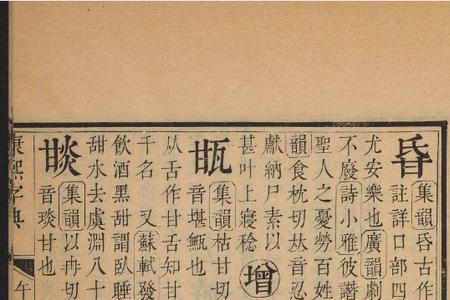 集韻昏古作
註詳口部四
尤安樂也廣韻劇
不廢詩小雅彼譖
聖人之憂勞百姓
韻食枕切𠀤音忍
獻納尸素以
甚叶上寑稔
增
集韻枯甘切
音堪甌也
从舌作甘舌知甘
千名 又蘇軾發
飲酒黑甜謂臥睡
甜水去虞淵八十
集韻以冉切
音琰甘也
康熙字典
午